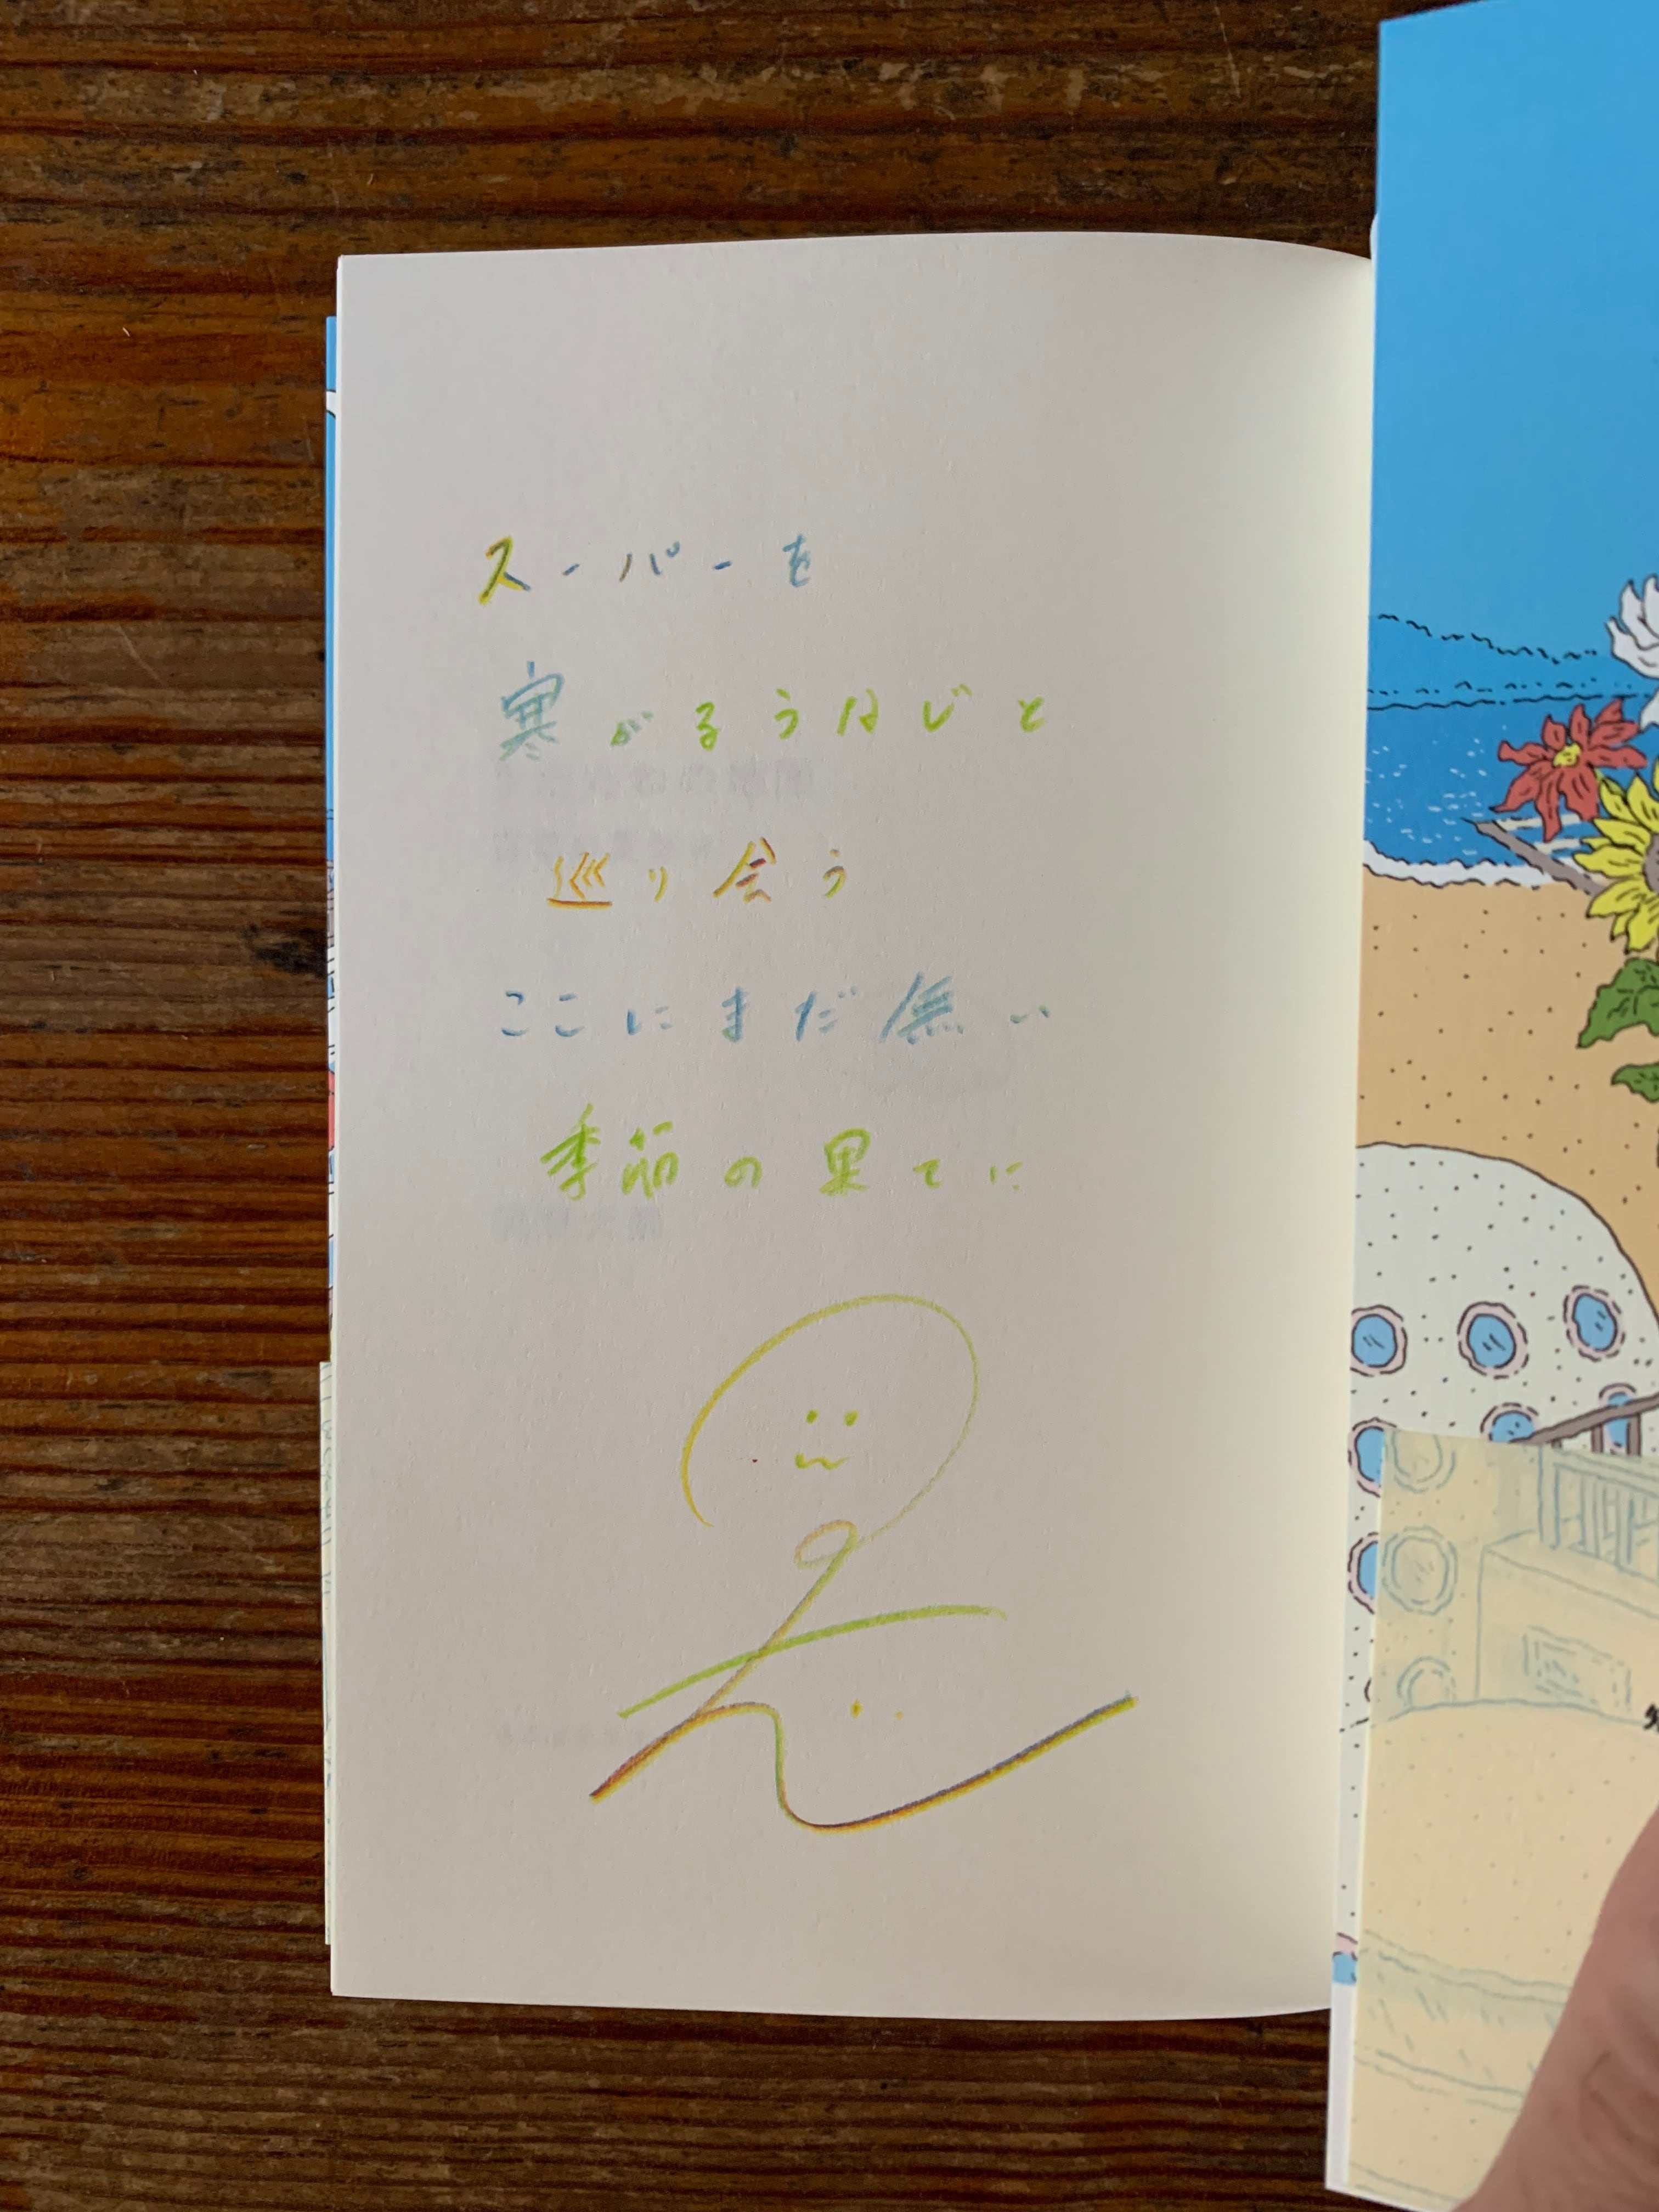 スーパーを
寒がるうなじと
巡り会う
ここにまだ無い
季節の果てに